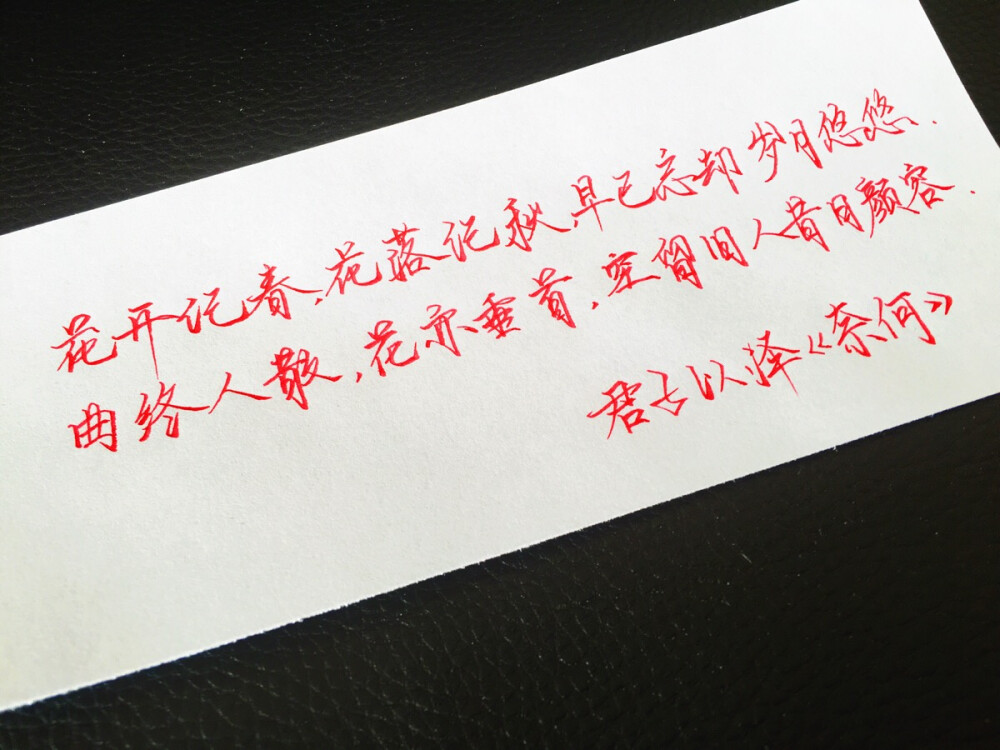 花开记春,花落记秋,早已忘却岁月悠悠.
曲终人散,花亦垂首,空留旧人昔日颜容.
君子以泽《奈何》